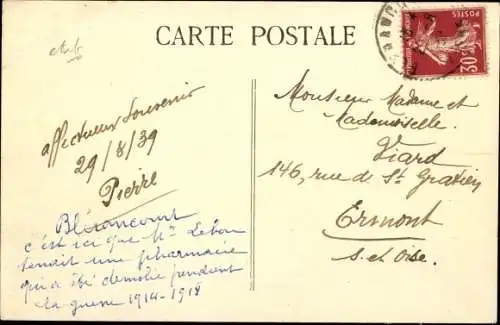 CARTE POSTALE
POSTES
30c
affectueux souvenir
29/8/39
Pierre
Blérancourt
c'est ici que Mr Lebon
tenait une pharmacie
qui a été démolie pendant
la guerre 1914-1918
Monsieur Madame et
Mademoiselle.
Viard
146, rue de St Gratien
Ermont
S. et Oise.